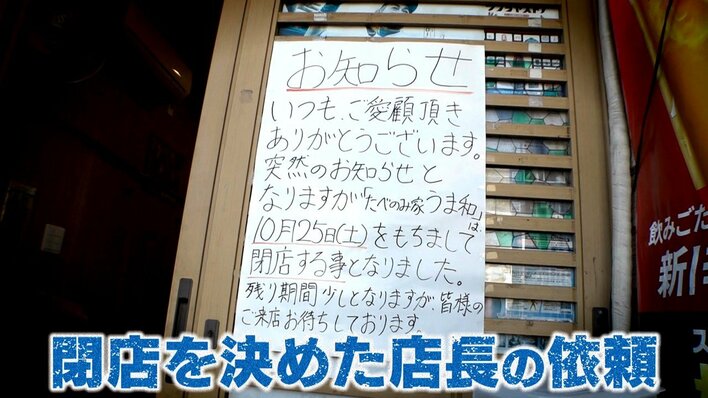 お知らせ
いつも、ご愛顧頂き
ありがとうございます。
突然のお知らせと
なりますが「たべのみ家うま和」は、
10月25日(土)をもちまして
閉店する事となりました。
残り期間少しとなりますが、皆様の
ご来店お待ちしております。
飲みごた
新
閉店を決めた店長の依頼